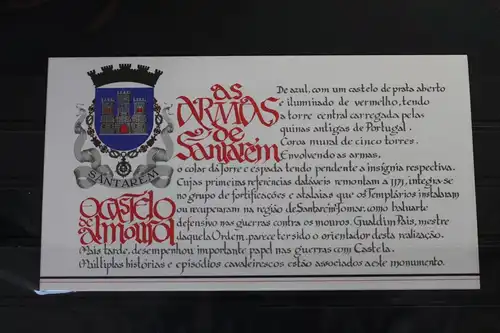 as
ARMAS
de
Santarém
De azul, com um castelo de prata aberto
e iluminado de vermelho, tendo
a torre central carregada pelas
quinas antigas de Portugal.
Coroa mural de cinco torres.
Envolvendo as armas,
o colar da Torre e espada tendo pendente a insígnia respectiva.
SANTARÉM
O CASTELO
de
almourol
Cujas primeiras referências datáveis remontam a 1171, integra-se
no grupo de fortificações e atalaias que os Templários instalavam
ou recuperaram na região de Santarém-Tomar, como baluarte
defensivo nas guerras contra os mouros. Gualdim Pais, mestre
daquela Ordem, parece ter sido o orientador desta realização.
Mais tarde, desempenhou importante papel nas guerras com Castela.
Múltiplas histórias e episódios cavaleirescos estão associados a este monumento.